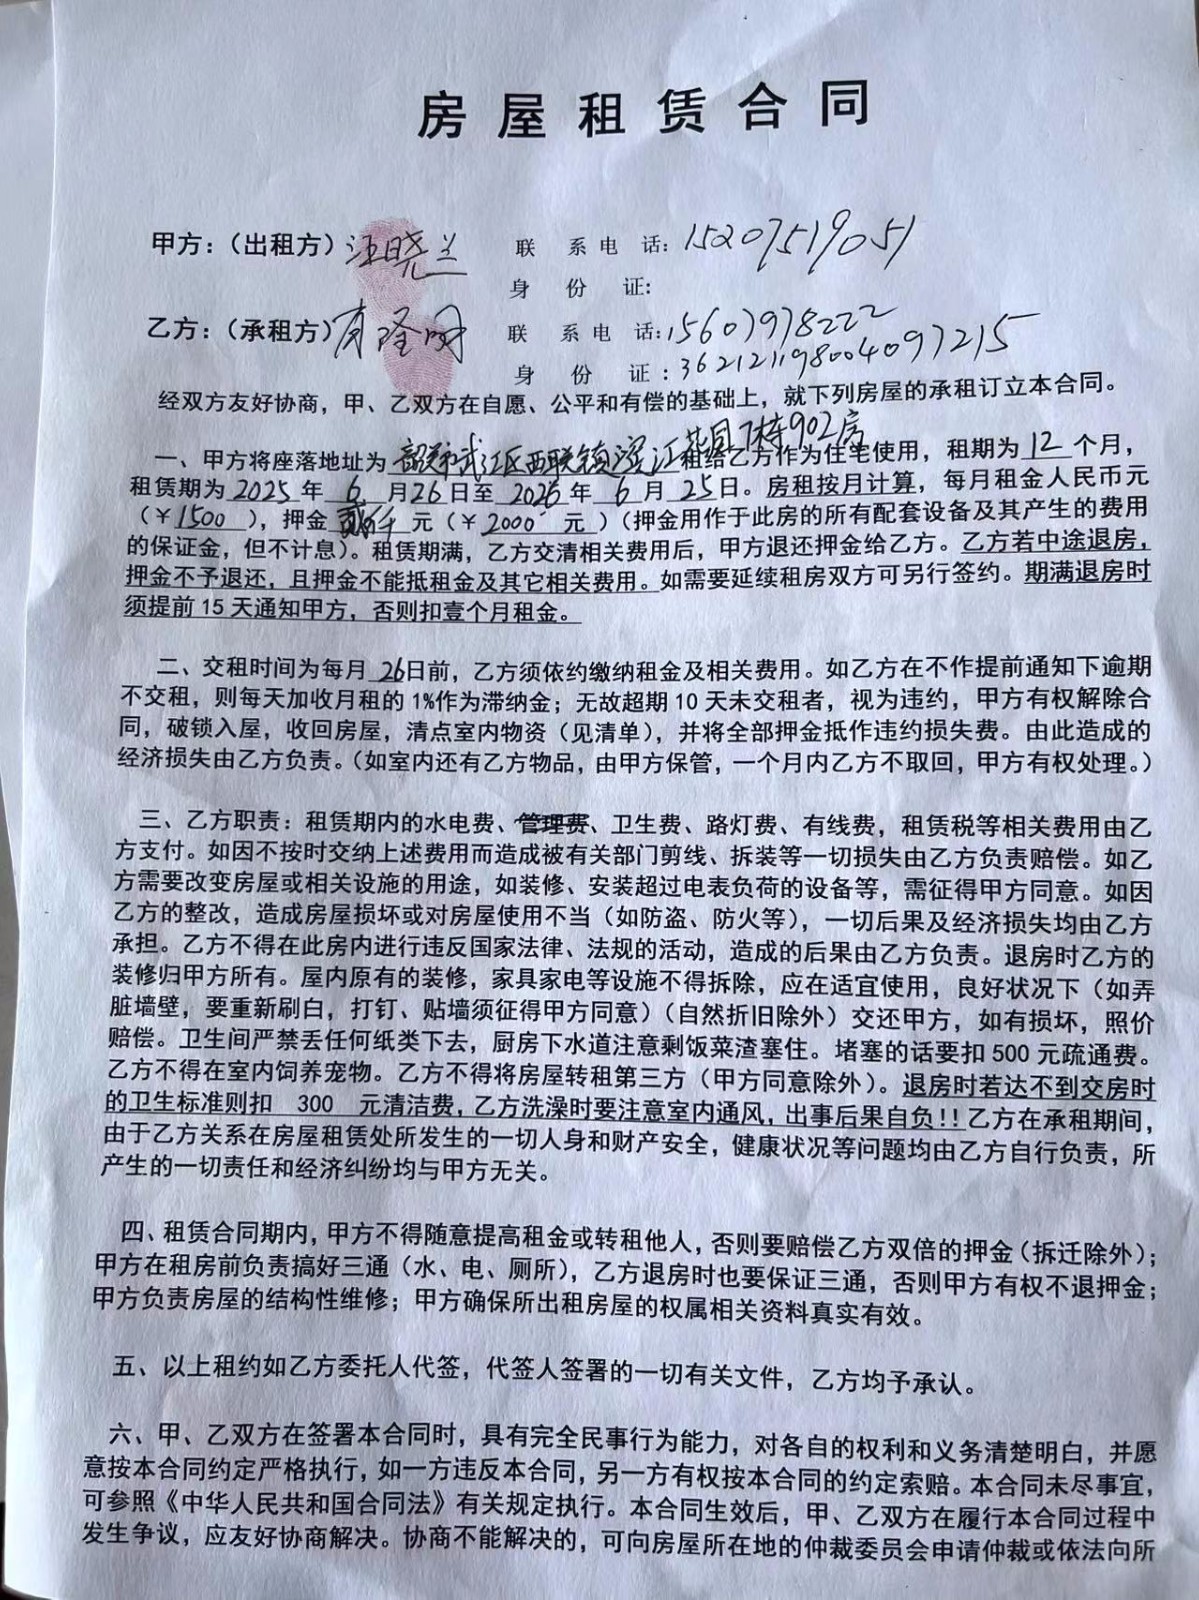 房屋租赁合同
甲方：（出租方）汪晓兰 联系电话：15207519051
身份证：
乙方：（承租方） 隆 联系电话：15607978222
身份证：362121198004097215
经双方友好协商，甲、乙双方在自愿、公平和有偿的基础上，就下列房屋的承租订立本合同。
花园7栋902房
一、甲方将座落地址为韶关市武江区西联镇滨江租给乙方作为住宅使用，租期为12个月，
租赁期为2025年6月26日至2026年6月25日。房租按月计算，每月租金人民币元
（￥1500），押金贰仟元（￥2000 元）（押金用作于此房的所有配套设备及其产生的费用
的保证金，但不计息）。租赁期满，乙方交清相关费用后，甲方退还押金给乙方。乙方若中途退房，
押金不予退还，且押金不能抵租金及其它相关费用。如需要延续租房双方可另行签约。期满退房时
须提前15天通知甲方，否则扣壹个月租金。
二、交租时间为每月26日前，乙方须依约缴纳租金及相关费用。如乙方在不作提前通知下逾期
不交租，则每天加收月租的1%作为滞纳金；无故超期10天未交租者，视为违约，甲方有权解除合
同，破锁入屋，收回房屋，清点室内物资（见清单），并将全部押金抵作违约损失费。由此造成的
经济损失由乙方负责。（如室内还有乙方物品，由甲方保管，一个月内乙方不取回，甲方有权处理。）
三、乙方职责：租赁期内的水电费、管理费、卫生费、路灯费、有线费，租赁税等相关费用由乙
方支付。如因不按时交纳上述费用而造成被有关部门剪线、拆装等一切损失由乙方负责赔偿。如乙
方需要改变房屋或相关设施的用途，如装修、安装超过电表负荷的设备等，需征得甲方同意。如因
乙方的整改，造成房屋损坏或对房屋使用不当（如防盗、防火等），一切后果及经济损失均由乙方
承担。乙方不得在此房内进行违反国家法律、法规的活动，造成的后果由乙方负责。退房时乙方的
装修归甲方所有。屋内原有的装修，家具家电等设施不得拆除，应在适宜使用，良好状况下（如弄
脏墙壁，要重新刷白，打钉、贴墙须征得甲方同意）（自然折旧除外）交还甲方，如有损坏，照价
赔偿。卫生间严禁丢任何纸类下去，厨房下水道注意剩饭菜渣塞住。堵塞的话要扣500元疏通费。
乙方不得在室内饲养宠物。乙方不得将房屋转租第三方（甲方同意除外）。退房时若达不到交房时
的卫生标准则扣 300 元清洁费，乙方洗澡时要注意室内通风，出事后果自负！！乙方在承租期间，
由于乙方关系在房屋租赁处所发生的一切人身和财产安全，健康状况等问题均由乙方自行负责，所
产生的一切责任和经济纠纷均与甲方无关。
四、租赁合同期内，甲方不得随意提高租金或转租他人，否则要赔偿乙方双倍的押金（拆迁除外）；
甲方在租房前负责搞好三通（水、电、厕所），乙方退房时也要保证三通，否则甲方有权不退押金；
甲方负责房屋的结构性维修；甲方确保所出租房屋的权属相关资料真实有效。
五、以上租约如乙方委托人代签，代签人签署的一切有关文件，乙方均予承认。
六、甲、乙双方在签署本合同时，具有完全民事行为能力，对各自的权利和义务清楚明白，并愿
意按本合同约定严格执行，如一方违反本合同，另一方有权按本合同的约定索赔。本合同未尽事宜，
可参照《中华人民共和国合同法》有关规定执行。本合同生效后，甲、乙双方在履行本合同过程中
发生争议，应友好协商解决。协商不能解决的，可向房屋所在地的仲裁委员会申请仲裁或依法向所